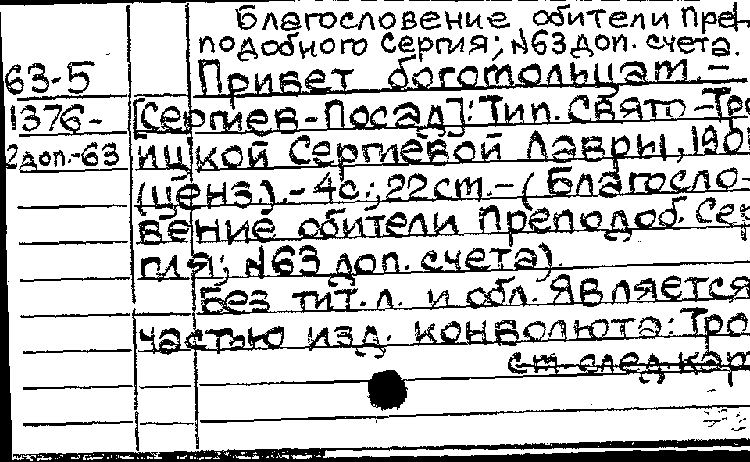 Благословение обители Пре-
подобного Сергия; №63 доп. счета.
63-5 Привет богомольцам.-
1376- [Сергиев-Посад]: Тип. Свято-Тро
2доп.-63 ицкой Сергиевой Лавры, 190
(ценз.).-4с.; 22см.-(Благосло-
вение обители Преподоб. Сер
гия; №63 доп. счета).
Без тит. л. и обл. Является
частью изд. конволюта: Тро
см. след. кар